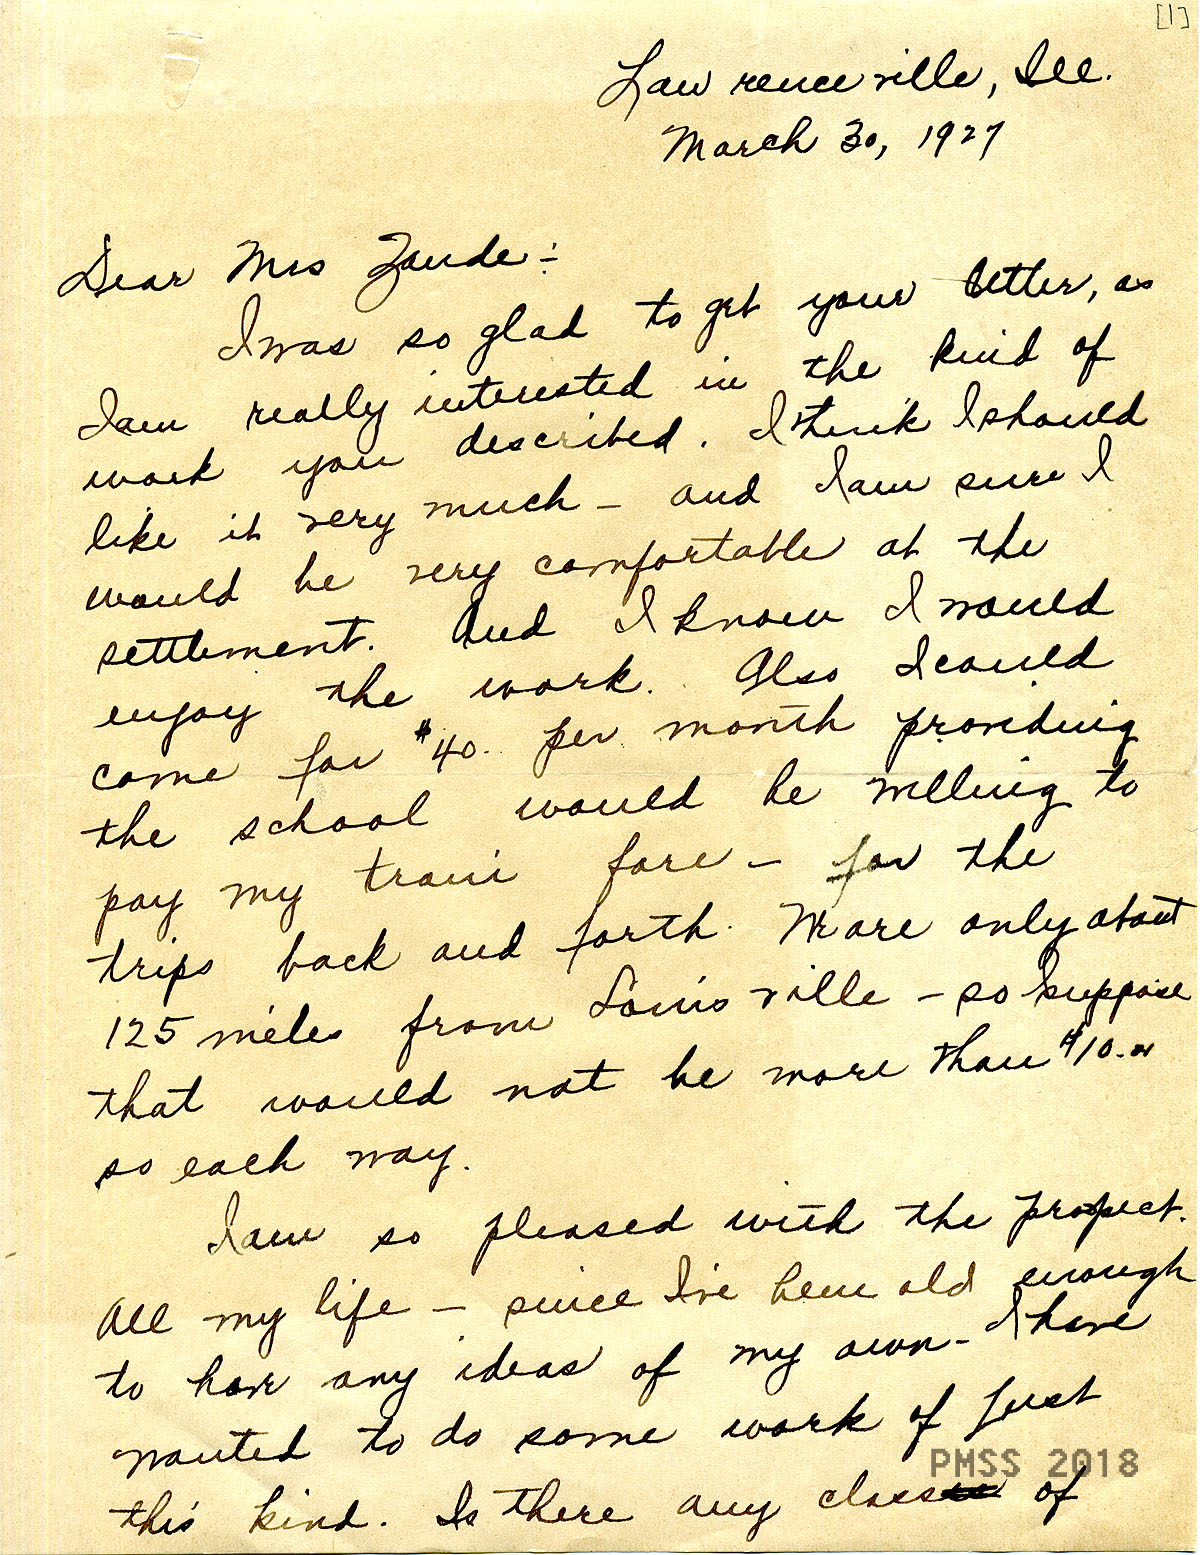 [1]
Lawrenceville, Ill.
March 30, 1927
Dear Mrs Zande:-
I was so glad to get your letter, as
I am really interested in the kind of
work you described. I think I should
like it very much - and I am sure I
would be very comfortable at the
settlement. And I know I would
enjoy the work. Also I could
come for $40. per month providing
the school would be willing to
pay my train fare - for the
trips back and forth. We are only about
125 miles from Louisville - so I suppose
that would not be more than $10. or
so each way.
I am so pleased with the prospect.
All my life - since I've been old enough
to have any ideas of my own - I have
wanted to do some work of just
this kind. Is there any class of
PMSS 2018